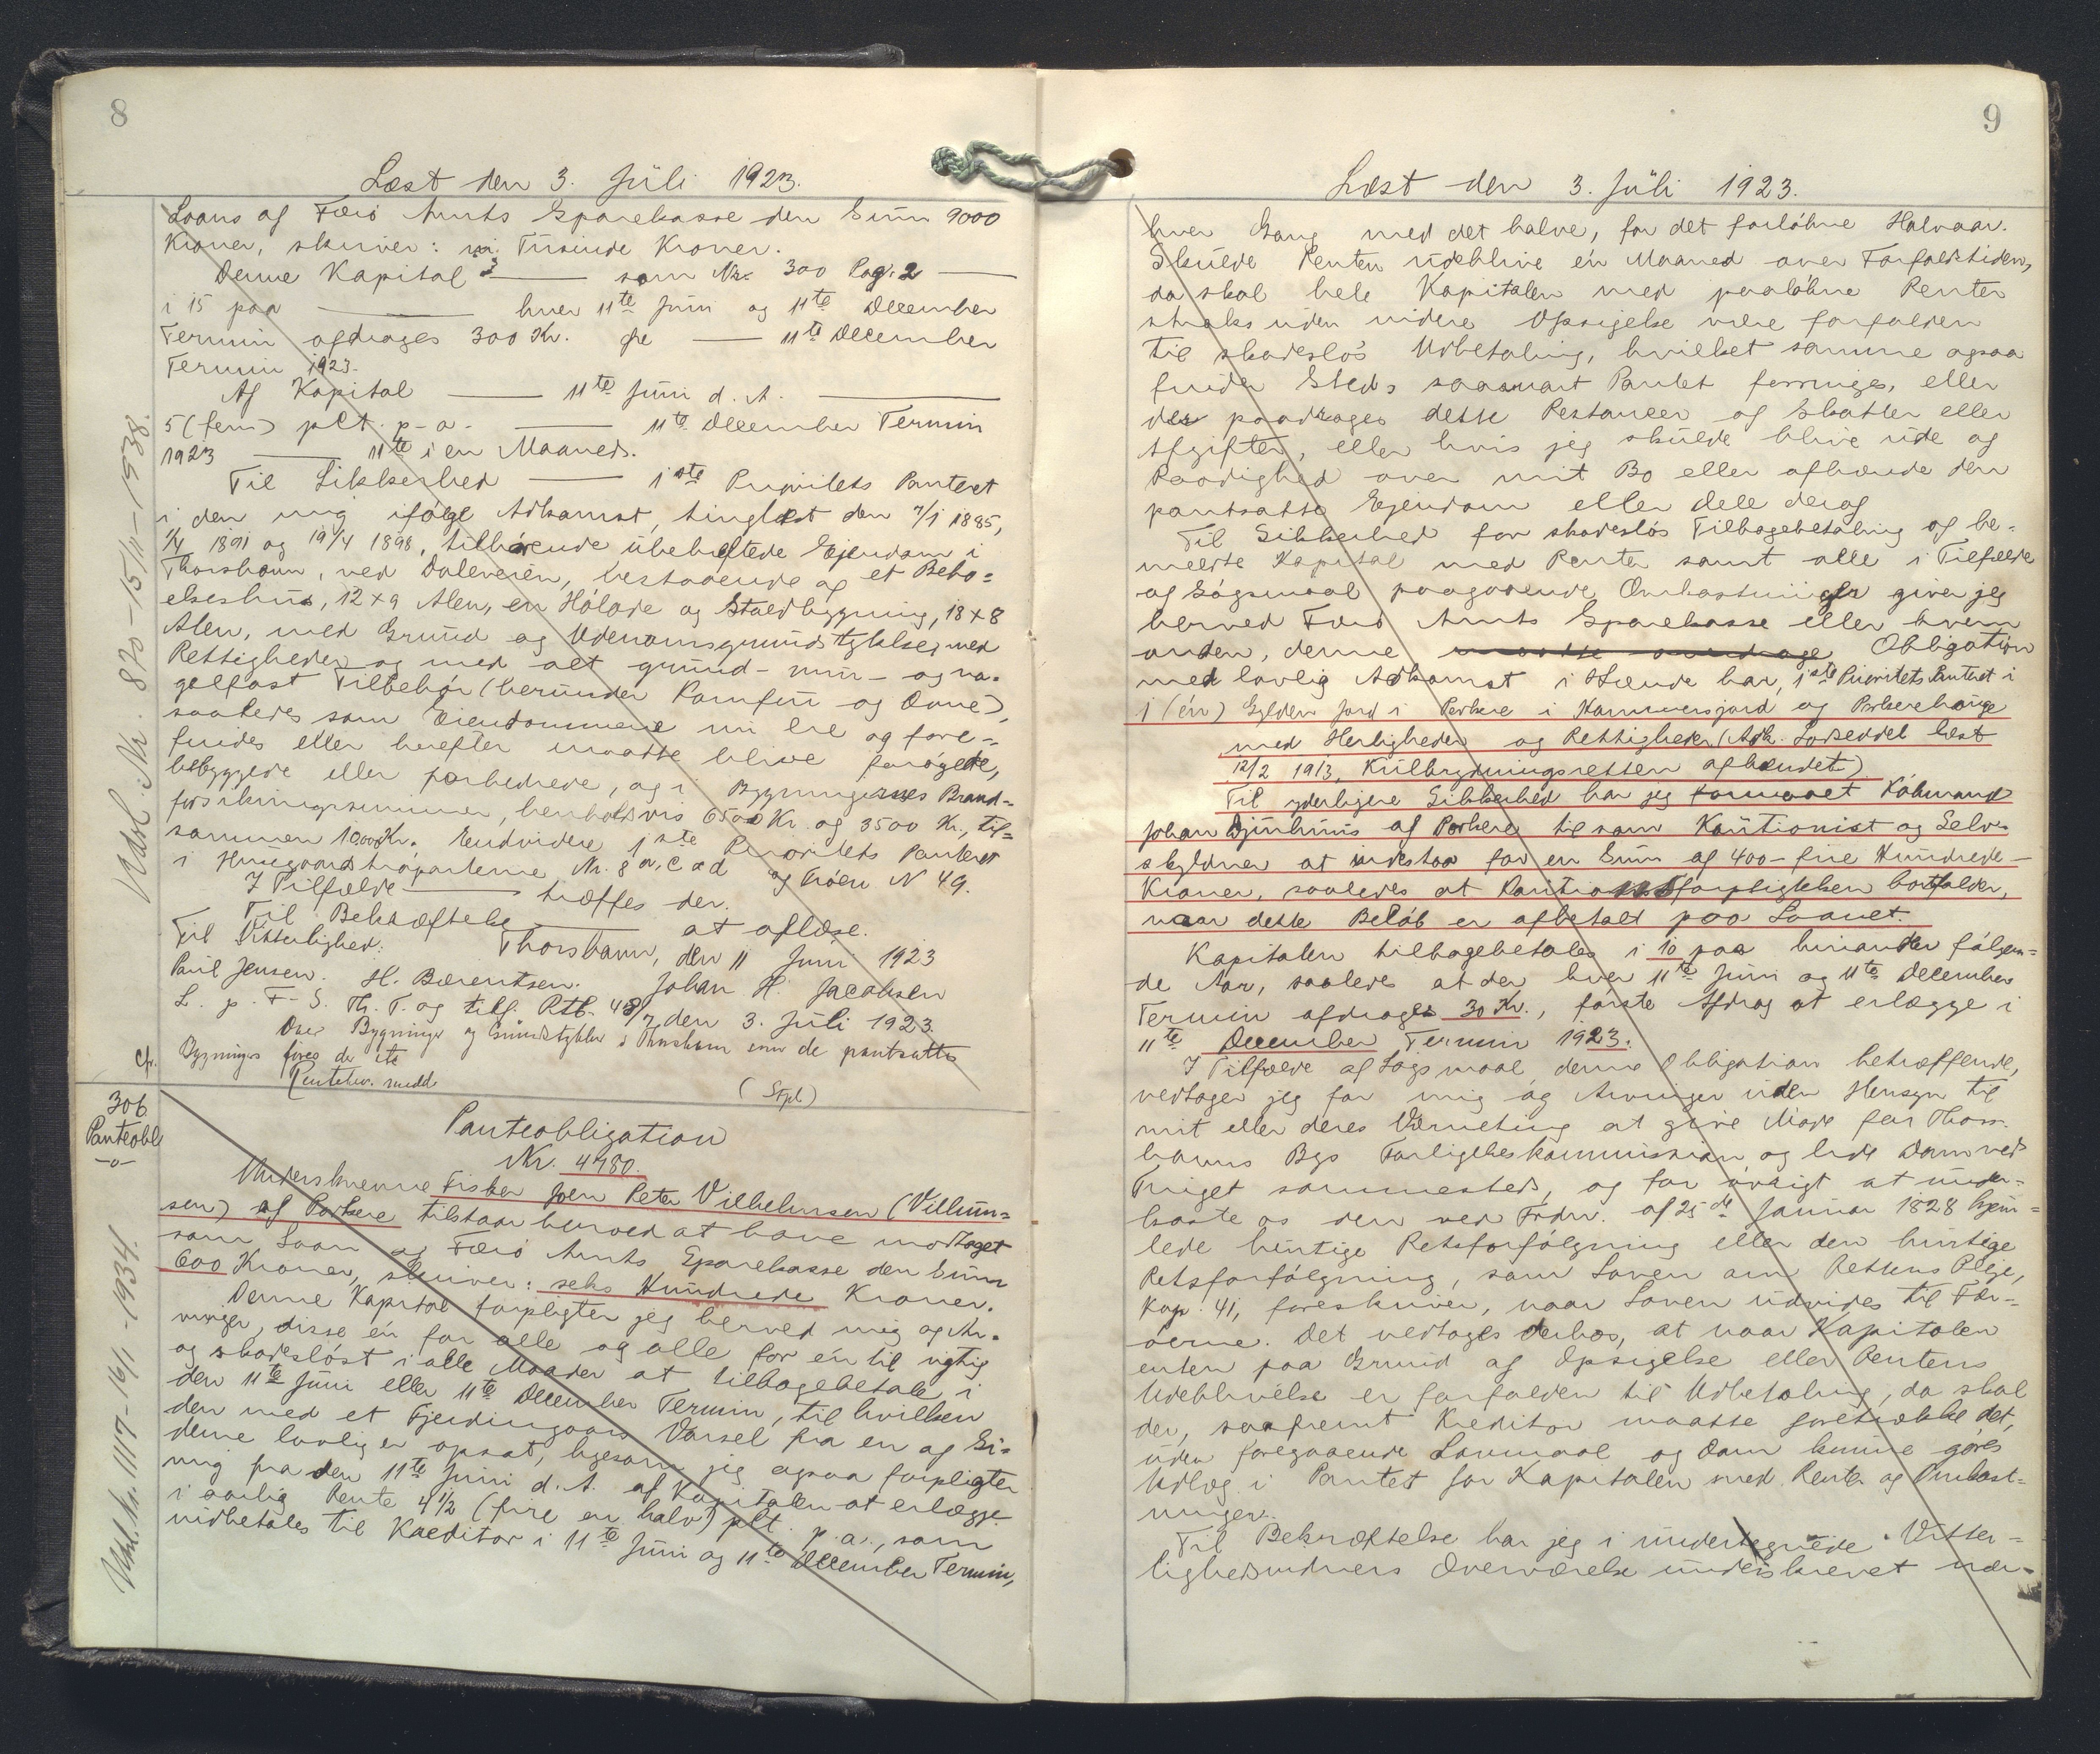 8
Læst den 3. Juli 1923.
Laans af Færø Amts Sparekasse den Sum 9000
Kroner, skriver: ni Tusinde Kroner.
Denne Kapital — som Nr. 300 Pag. 2 —
i 15 paa — hver 11te Juni og 11te December
Termin afdrages 300 Kr. — 11te December
Termin 1923.
Af Kapital — 11te Juni d. A. —
5 (fem) pCt. p. a. — 11te December Termin
1923 — 11te i en Maaned.
Til Sikkerhed — 1ste Prioritets Panteret
i den mig ifølge Adkomst, tinglæst den 7/1 1885,
1/4 1891 og 19/4 1898, tilhørende ubehæftede Ejendom i
Thorshavn, ved Dalevejen, bestaaende af et Bebo=
elseshus, 12 x 9 Alen, en Hølade og Staldbygning, 18 x 8
Alen, med Grund og Udenomsgrundstykke, med
Rettigheder og med alt grund- mur- og na-
gelfast Tilbehør (herunder Komfur og Ovne),
saaledes som Eiendommene nu ere og fore=
findes eller herefter maatte blive forøgede,
bebyggede eller forbedrede, og i Bygningernes Brand=
forsikringssummer, henholdsvis 6500 Kr. og 3500 Kr., til=
sammen 10000 Kr. Endvidere 1ste Prioritets Panteret
i Husegaardstrøparterne Nr. 8 a, c & d og Trøen N 49.
I Tilfælde — træffes der.
Til Bekræftelse — at aflæse.
Thorshavn, den 11 Juni 1923
Til Vitterlighed: Johan H. Jacobsen
Paul Jensen. H. Bærentsen.
L. p. F. S. Th. T. og tilf. Rtb. 48/7, den 3. Juli 1923.
Over Bygninger og Grundstykker i Thorshavn som de pantsatte
Bygninger føres der ikke
Panteben. medd.
(Stpl)
Cfr.
Udsl. Nr. 870 - 15/11 - 1938.
306
Panteobl
-o-
Panteobligation
Nr. 4480.
Underskrevne Fisker Joen Peter Vilhelmsen (Villum=
sen) af Porkere tilstaar herved at have modtaget
som Laan af Færø Amts Sparekasse den Sum
600 Kroner, skriver: seks Hundrede Kroner.
Denne Kapital forpligter jeg herved mig og Ar=
vinger, disse én for alle og alle for én til rigtig
og skadesløst i alle Maader at tilbagebetale i
den 11te Juni eller 11te December Termin, til hvilken
den med et Fjerdingaars Varsel fra en af Si=
derne lovlig er opsat, ligesom jeg ogsaa forpligter
mig fra den 11te Juni d. A. af Kapitalen at erlægge
i aarlig Rente 4 1/2 (fire en halv) pCt. p. a., som
udbetales til Kreditor i 11te Juni og 11te December Termin,
Udsl. Nr. 1117 - 16/1 - 1934.
9
Læst den 3. Juli 1923.
hver Gang med det halve, for det forløbne Halvaar.
Skulde Renten udeblive én Maaned over Forfaldstiden,
da skal hele Kapitalen med paaløbne Renter
straks uden videre Opsigelse være forfalden
til skadesløs Udbetaling, hvilket samme ogsaa
finder Sted, saasnart Pantet forringes, eller
der paadrages dette Restancer af Skatter eller
Afgifter, eller hvis jeg skulde blive ude af
Raadighed over mit Bo eller afhænde den
pantsatte Ejendom eller Dele deraf
Til Sikkerhed for skadesløs Tilbagebetaling af be=
meldte Kapital med Renter samt alle i Tilfælde
af Søgsmaal paagaaende Omkostninger giver jeg
herved Færø Amts Sparekasse eller hvem
anden, denne maatte overdrage Obligation
med lovlig Adkomst i Hænde har, 1ste Prioritets Panteret i
1 (én) Gylden Jord i Porkere i Hammersjord og Porkerehauge
med Herligheder og Rettigheder (Adk. Lodseddel læst
12/2 1913, Kulbrydningsretten afhændet)
Til yderligere Sikkerhed har jeg formaaet Købmand
Johan Djurhuus af Porkere til som Kautionist og Selv-
skyldner at indestaa for en Sum af 400 - fire Hundrede -
Kroner, saaledes at Kautionsforpligtelsen bortfalder,
naar dette Beløb er afbetalt paa Laanet.
Kapitalen tilbagebetales i 10 paa hinanden følgen=
de Aar, saaledes at der hver 11te Juni og 11te December
Termin afdrages 30 Kr., første Afdrag at erlægge i
11te December Termin 1923.
I Tilfælde af Søgsmaal, denne Obligation betræffende,
vedtager jeg for mig og Arvinger uden Hensyn til
mit eller deres Værneting at give Møde for Thors-
havns Bys Forligelseskommission og lide Dom ved
Tinget sammesteds, og for øvrigt at under=
kaste os den ved Frdn. af 25de Januar 1828 hjem=
lede hurtige Retsforfølgning eller den hurtige
Retsforfølgning, som Loven om Rettens Pleje,
Kap. 41, foreskriver, naar Loven udvides til Fær-
øerne. Det vedtages derhos, at naar Kapitalen
enten paa Grund af Opsigelse eller Rentens
Udeblivelse er forfalden til Udbetaling, da skal
der, saafremt Kreditor maatte foretrække det,
uden foregaaende Lovmaal og Dom kunne gøres
Udlæg i Pantet for Kapitalen med Renter og Omkost=
ninger.
Til Bekræftelse har jeg i undertegnede Vitter=
lighedsvidners Overværelse underskrevet nær=